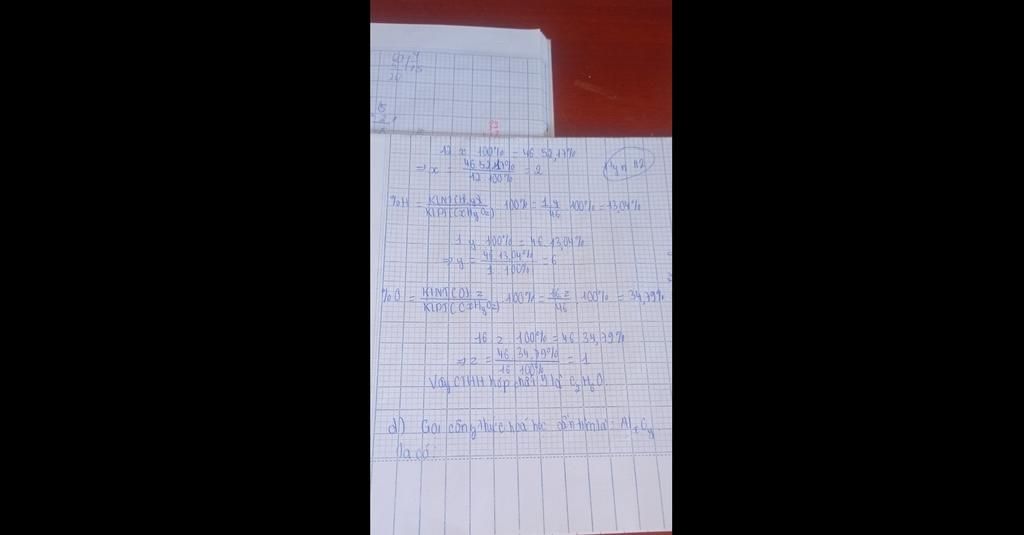 12 x 100% = 46 52,17%
⇒ x = 46 52,17% / 12 100% = 2
%H = KLNT(H).y / KLPT(CxHyOz) 100% = 1.y / 46 100% = 13,04%
1 y 100% = 46 13,04%
⇒ y = 46 13,04% / 1 100% = 6
%O = KLNT(O) z / KLPT(CxHyOz) 100% = 16 z / 46 100% = 34,79%
16 z 100% = 46 34,79%
⇒ z = 46 34,79% / 16 100% = 1
Vậy CTHH hợp chất Y là C2H6O
d) Gọi công thức hoá học cần tìm là: AlxCy
Ta có: